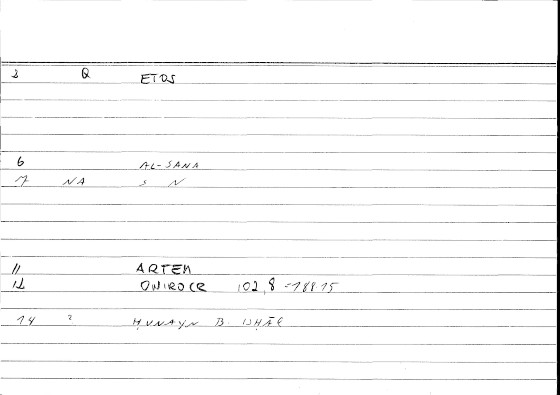 2 Q ETOS
6 AL-SANA
7 NA S N
11 ARTEM
12 ONIROCR 102,8 = 188.15
14 ? ḤUNAYN B. ISḤĀQ